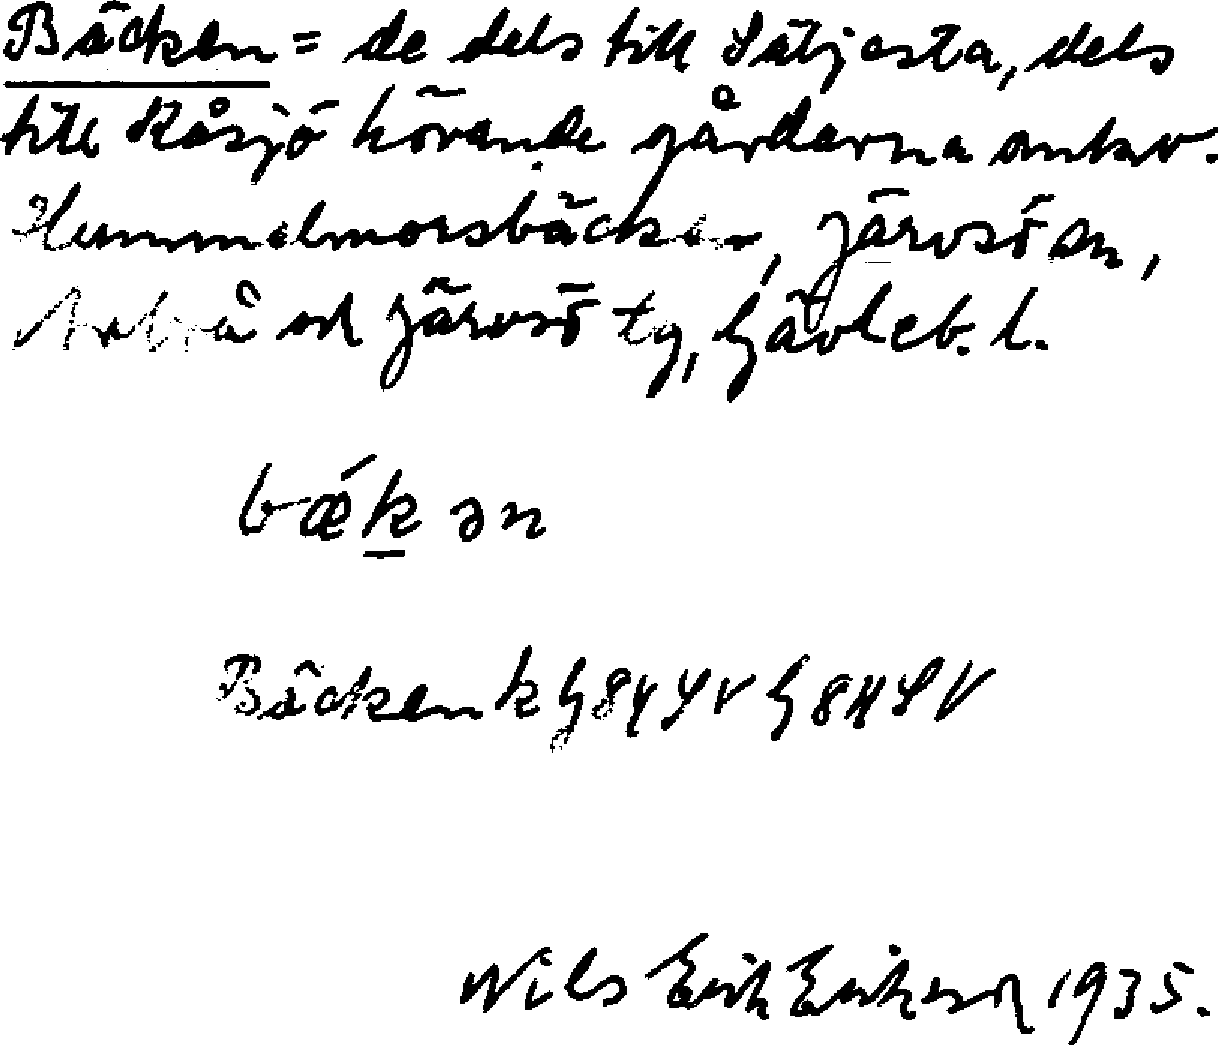 Bäcken = de dels till Sätjesta, dels
till Kåsjö hörande gårdarna omkr.
Hummelmorsbäcken, Järvsö sn,
Arbrå och Järvsö tg, Gävleb. l.
bǽkən
Bäcken k G 84 SV G 84 SV
Nils Erik Eriksson 1935.